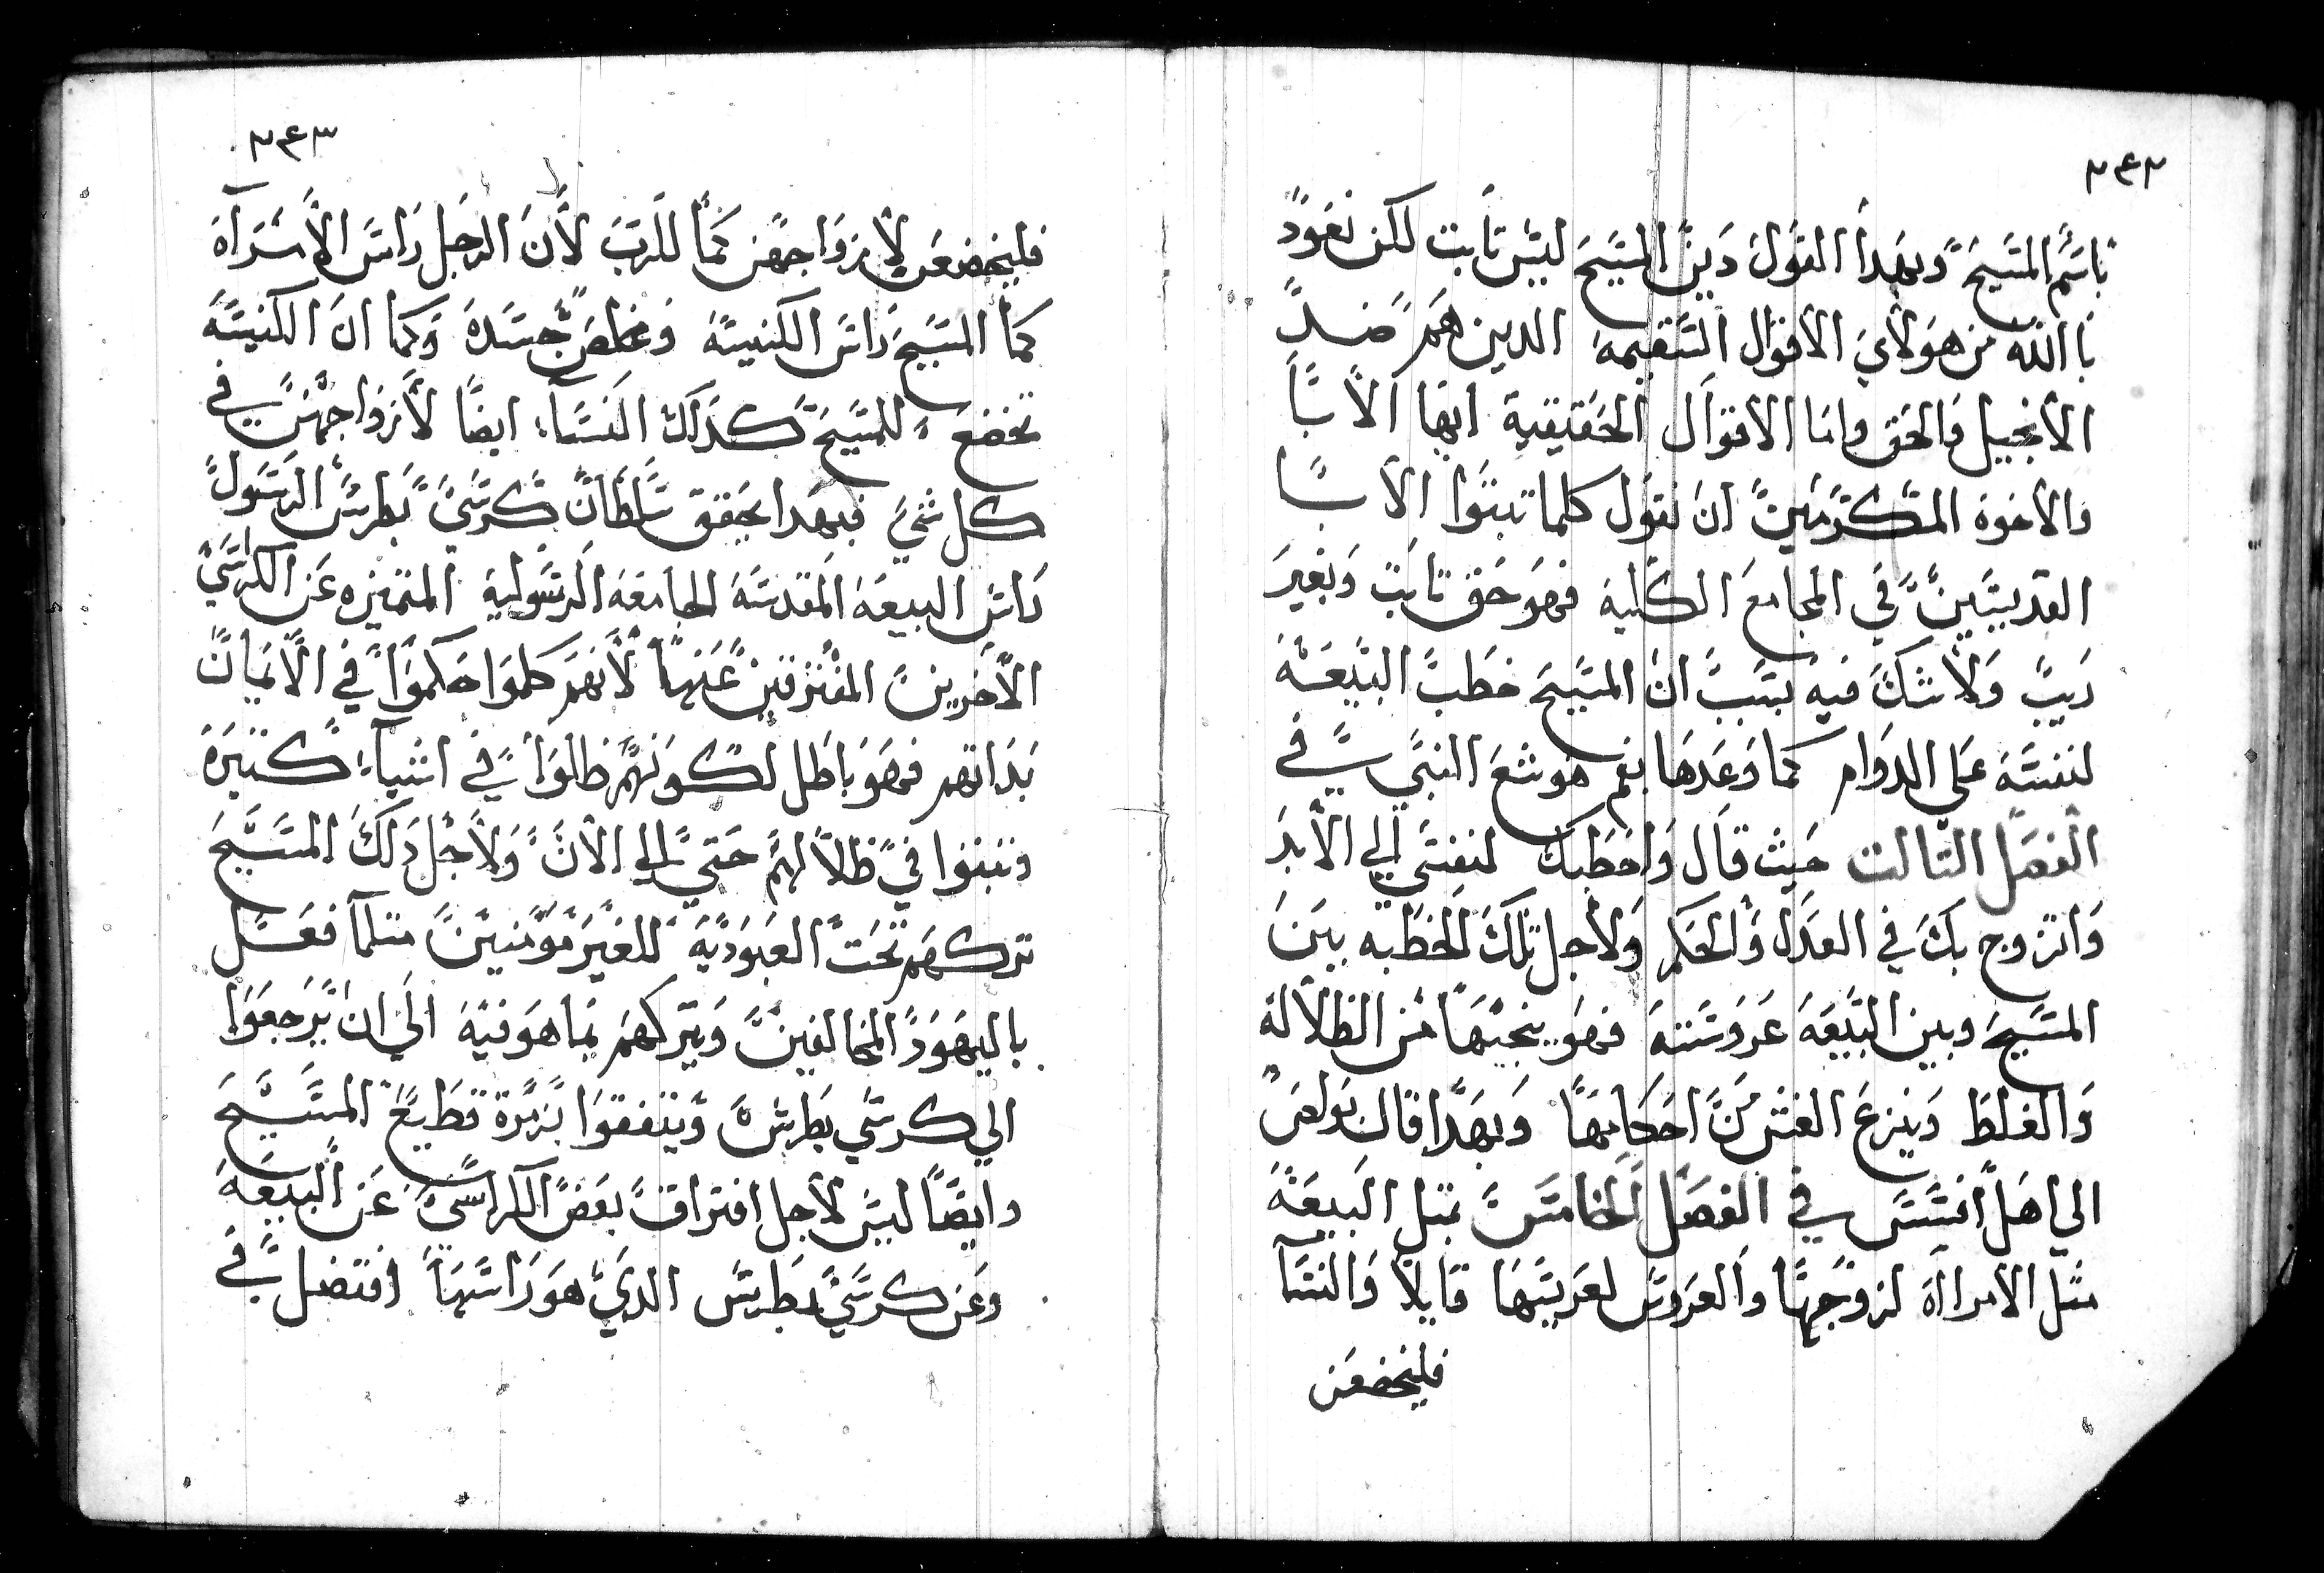 ٢٤٢
باسم المسيح وبهدا القول دين المسيح ليس تابت لكن نعود
باالله من هولاي الاقوال السقيمة الدين هم ضد
الانجيل والحق واما الاقوال الحقيقية ايها الابا
والاخوة المكرمين ان نقول كلما تبتوا الابا
القديسين في المجامع الكلية فهو حق تابت وبغير
ريب ولا شك فيه بسبب ان المسيح خطب البيعة
لنفسة علي الدوام كما وعدها بفم هوشع النبي في
الفصل التالت حيث قال واخطبك لنفسي الي الابد
واتزوج بك في العدل والحكم ولاجل تلك الخطبه بين
المسيح وبين البيعة عروسته فهو ينجيها من الظلالة
والغلط وينزع الغش من احكامها وبهدا قال بولص
الي اهل افسس في الفصل الخامس بمتل البيعة
متل الامراة لزوجها والعروس لعريسها قايلا والنسا
فليخضعن
٢٤٣
فليخضعن لازواجهن كما للرب لان الرجل راس الامراة
كما المسيح راس الكنيسة ومخلص جسدة وكما ان الكنيسة
تخضع للمسيح كدلك النساء ايضا لازواجهن في
كل شي فبهدا يحقق سلطان كرسي بطرس الرسول
راس البيعة المقدسة الجامعة الرسولية المتميزه عن الكراسي
الاخرين المفترقين عنها لانهم كلموا حكموا في الايمان
بداتهم فهو باطل لكونهم ظلوا في اشياء كتيرة
وتبتوا في ظلالهم حتي الي الان ولاجل دلك المسيح
تركهم تحت العبودية للغير مومنين متلما فعل
باليهود المخالفين ويتركهم بما هو فية الي ان يرجعوا
الي كرسي بطرس ويتفقوا بزمرة قطيع المسيح
وايضا ليس لاجل افتراق بعض الكراسي عن البيعة
وعن كرسي بطرس الدي هو راسها افتضل في